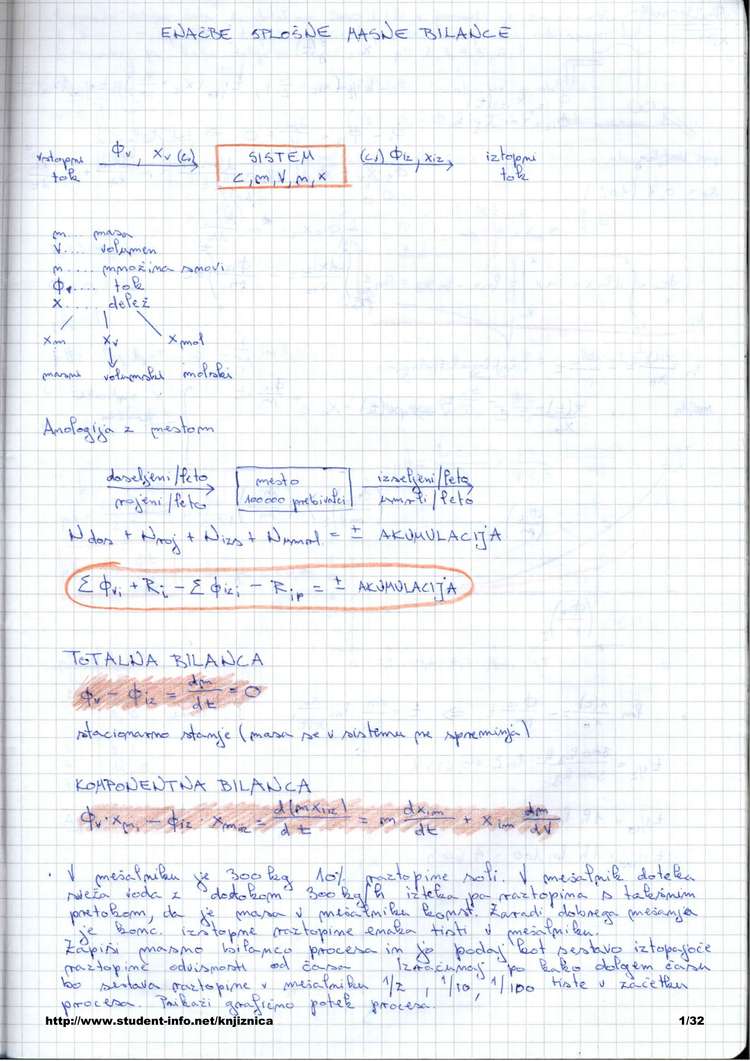 ENAČBE SPLOŠNE MASNE BILANCE
vstopni tok Φv, xv (cv) SISTEM c, m, V, n, x (cv) Φiz, xiz iztopni tok
m... masa
V.... volumen
n.... množina snovi
Φv.... tok
x..... delež
xm xv xmol
masni volumski molski
Analogija z mestom
doseljeni/leto mesto izseljeni/leto
rojeni/leto 100 000 prebivalci umrli/leto
Ndos + Nroj + Nizs + Numrl = ± AKUMULACIJA
Σ Φvi + Ri - Σ Φizi - Rip = ± AKUMULACIJA
TOTALNA BILANCA
Φv - Φiz = dm/dt = 0
stacionarno stanje (masa se v sistemu ne spreminja)
KOMPONENTNA BILANCA
Φv · xmi - Φiz · xmiz = d(mxiz)/dt = m dxim/dt + xim dm/dV
· V mešalniku je 300 kg 10% raztopine soli. V mešalnik doteka
sveža voda z dotokom 300 kg/h izteka pa raztopina s takšnim
pretokom, da je masa v mešalniku konst. Zaradi dobrega mešanja
je konc. izstopne raztopine enaka tisti v mešalniku.
Zapiši masno bilanco procesa in jo podaj kot sestavo iztopajoče
raztopine odvisnosti od časa. Izračunaj po kako dolgem času
bo sestava raztopine v mešalniku 1/2, 1/10, 1/100 tiste v začetku
procesa. Prikaži grafično potek procesa.
http://www.student-info.net/knjiznica 1/32